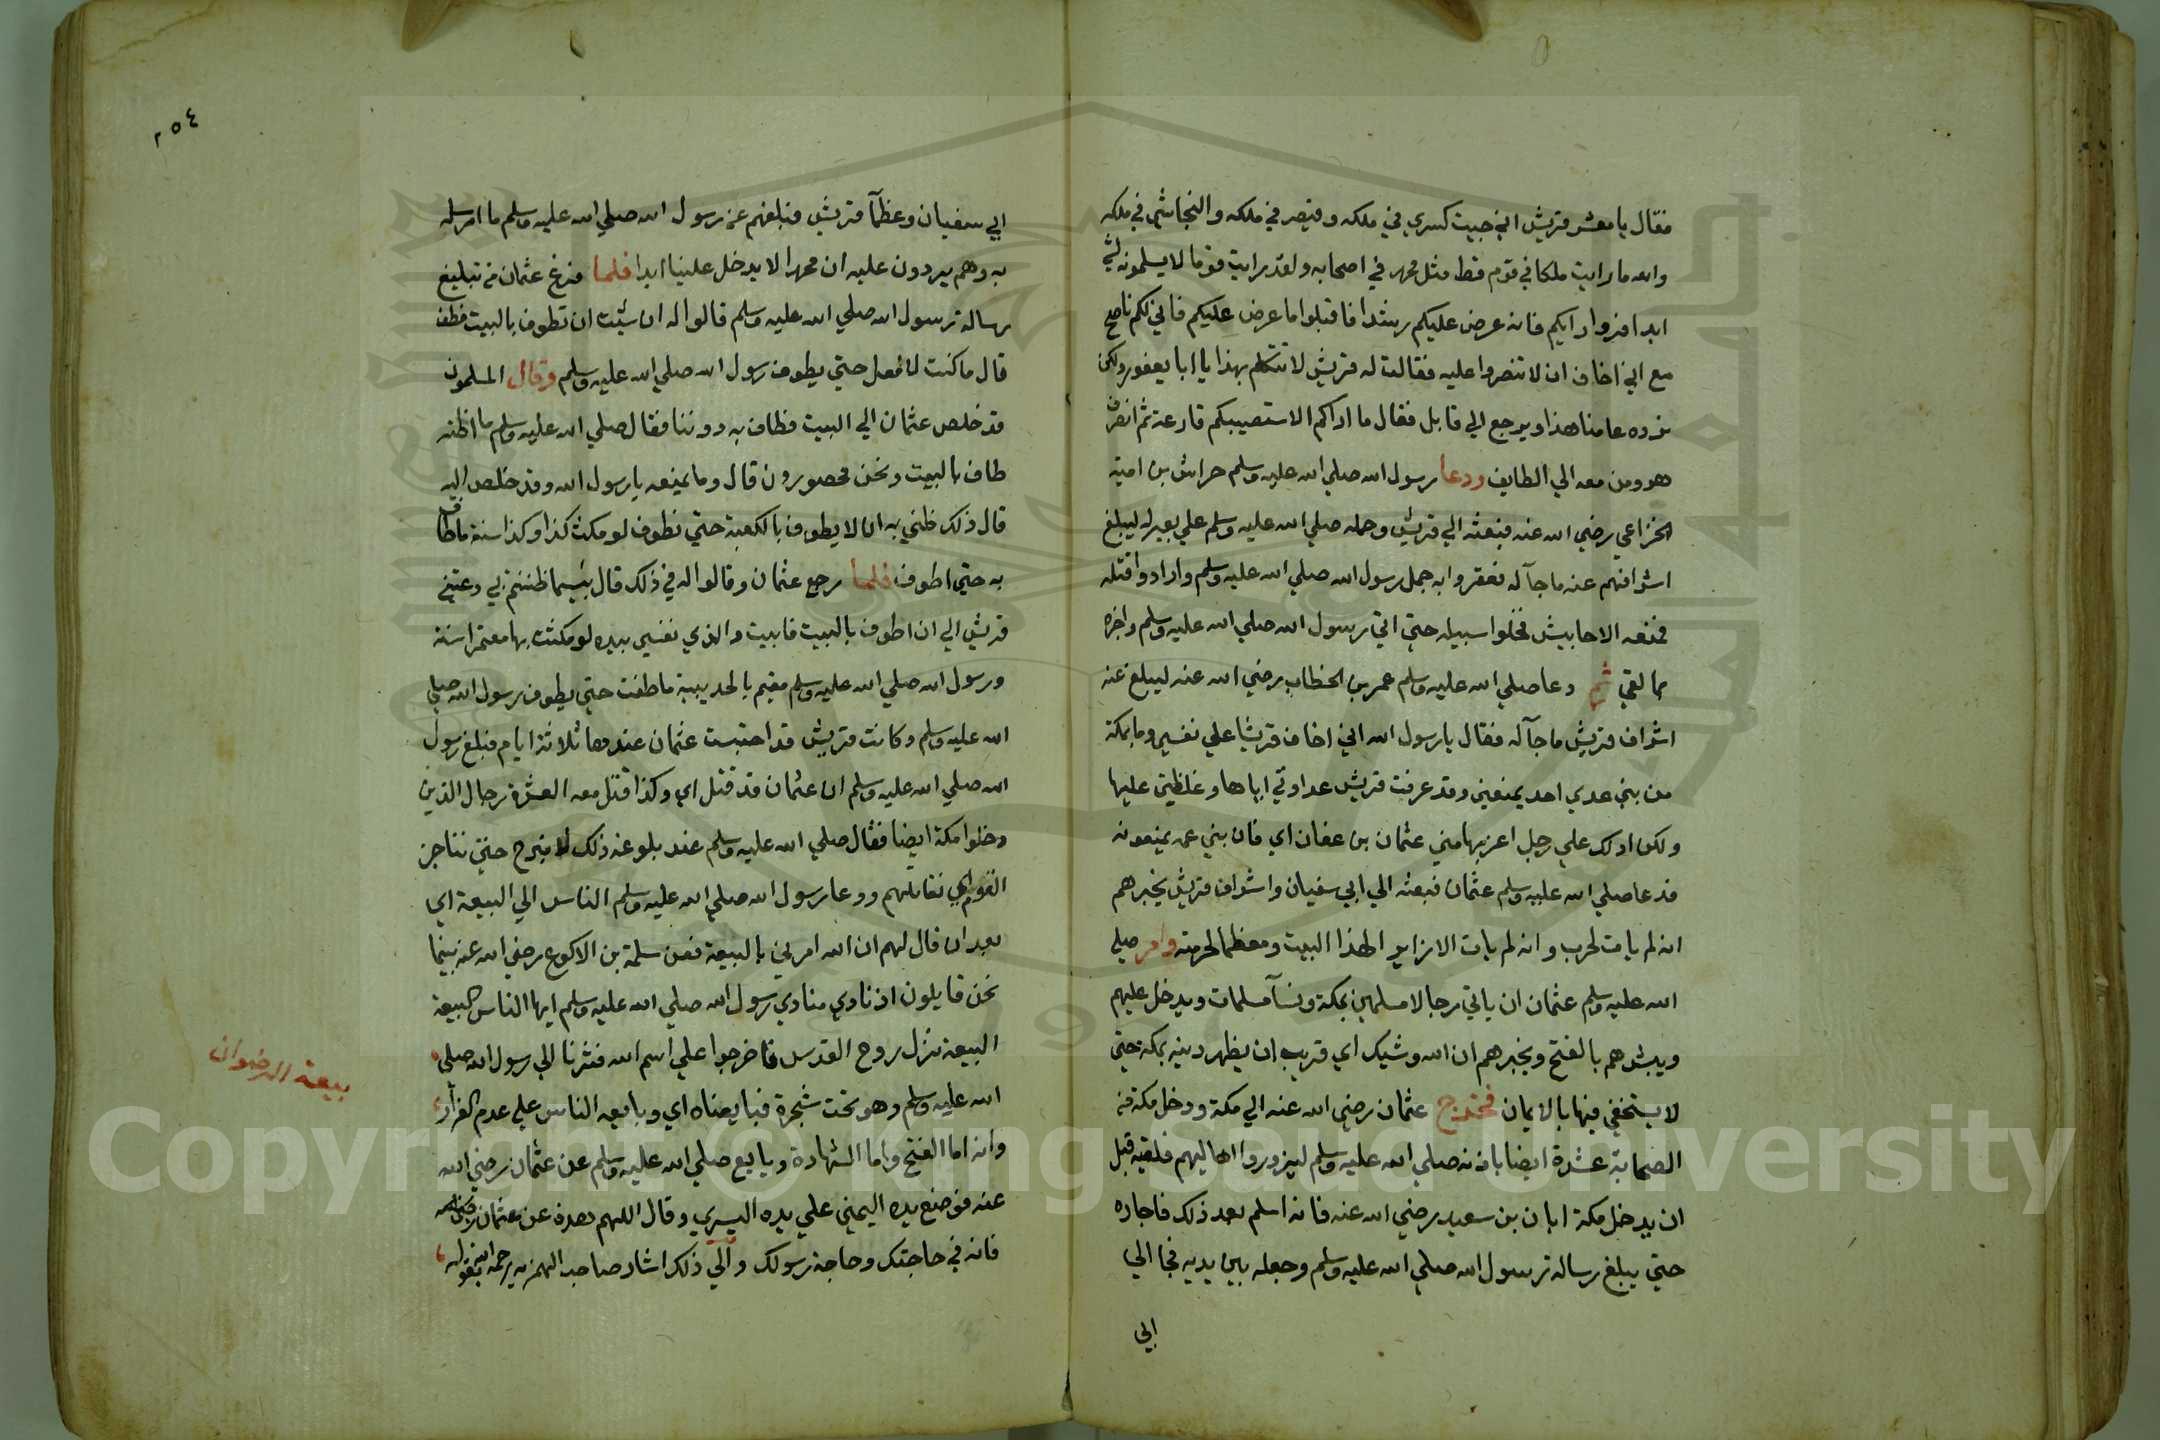 فقال يا معشر قريش اني جيت كسري في ملكه وقيصر في ملكه والنجاشي في ملكه
والله ما رايت ملكا في قوم قط مثل محمد في اصحابه ولقد رايت قوما لا يسلمونه لشي
ابدا فروا رايكم فانه عرض عليكم رشدا فاقبلوا ما عرض عليكم فاني لكم ناصح
مع اني اخاف ان لا تنصروا عليه فقالت له قريش لا تتكلم بهذا يا ابا يعفور ولكن
نرده عامنا هذا ويرجع الي قابل فقال ما اراكم الا ستصيبكم قارعة ثم انصرف
هو ومن معه الي الطايف ودعا رسول الله صلي الله عليه وسلم حراش بن امية
الخزاعي رضي الله عنه فبعثه الي قريش وحمله صلي الله عليه وسلم علي بعير له ليبلغ
اشرافهم عنه ما جآ له فعقروا به جمل رسول الله صلي الله عليه وسلم وارادوا قتله
فمنعه الاحابيش فخلوا سبيله حتي اتي رسول الله صلي الله عليه وسلم واخبره
بما لقي ثم دعا صلي الله عليه وسلم عمر بن الخطاب رضي الله عنه ليبلغ عنه
اشراف قريش ما جآ له فقال يا رسول الله اني اخاف قريشا علي نفسي وما بمكة
من بني عدي احد يمنعني وقد عرفت قريش عداوتي اياها وغلظتي عليها
ولكن ادلك علي رجل اعز بها مني عثمان بن عفان اي فان بني عمه يمنعونه
فدعا صلي الله عليه وسلم عثمان فبعثه الي ابي سفيان واشراف قريش يخبرهم
انه لم يات لحرب وانه لم يات الا زايرا لهذا البيت ومعظما لحرمته وامر صلي
الله عليه وسلم عثمان ان ياتي رجالا مسلمين بمكة ونسآ مسلمات ويدخل عليهم
ويبشرهم بالفتح ويخبرهم ان الله وشيك اي قريب ان يظهر دينه بمكة حتي
لا يستخفي فيها بالايمان فخرج عثمان رضي الله عنه الي مكة ودخل مكة من
الصحابة عشرة ايضا باذنه صلي الله عليه وسلم ليزوروا اهاليهم فلقيه قبل
ان يدخل مكة ابان بن سعيد رضي الله عنه فانه اسلم بعد ذلك فاجاره
حتي يبلغ رسالة رسول الله صلي الله عليه وسلم وجعله بين يديه فجا الي
ابي
٢٥٤
ابي سفيان وعظمآ قريش فبلغهم عن رسول الله صلي الله عليه وسلم ما ارسله
به وهم يردون عليه ان محمدا لا يدخل علينا ابدا فلما فرغ عثمان من تبليغ
رسالة رسول الله صلي الله عليه وسلم قالوا له ان شئت ان تطوف بالبيت فطف
قال ما كنت لافعل حتي يطوف رسول الله صلي الله عليه وسلم وقال المسلمون
قد خلص عثمان الي البيت فطاف به دوننا فقال صلي الله عليه وسلم ما اظنه
طاف بالبيت ونحن محصورون قال وما يمنعه يا رسول الله وقد خلص اليه
قال ذلك ظني به ان لا يطوف بالكعبة حتي نطوف لو مكث كذا وكذا سنة ما طاف
به حتي اطوف فلما رجع عثمان وقالوا له في ذلك قال بئسما ظننتم بي دعتني
قريش الي ان اطوف بالبيت فابيت والذي نفسي بيده لو مكثت بها معتمرا سنة
ورسول الله صلي الله عليه وسلم مقيم بالحديبية ما طفت حتي يطوف رسول الله صلي
الله عليه وسلم وكانت قريش قد احتبست عثمان عندها ثلاثة ايام فبلغ رسول
الله صلي الله عليه وسلم ان عثمان قد قتل اي وكذا قتل معه العشرة رجال الذين
دخلوا مكة ايضا فقال صلي الله عليه وسلم عند بلوغه ذلك لا نبرح حتي نناجز
القوم اي نقاتلهم ودعا رسول الله صلي الله عليه وسلم الناس الي البيعة اي
بعد ان قال لهم ان الله امرني بالبيعة فعن سلمة بن الاكوع رضي الله عنه بينما
نحن قايلون اذ نادي منادي رسول الله صلي الله عليه وسلم ايها الناس البيعة
البيعة نزل روح القدس فاخرجوا علي اسم الله فثرنا الي رسول الله صلي
بيعة الرضوان
الله عليه وسلم وهو تحت شجرة فبايعناه اي وبايعه الناس علي عدم الفرار
وانه اما الفتح واما الشهادة وبايع صلي الله عليه وسلم عن عثمان رضي الله
عنه فوضع يده اليمني علي يده اليسري وقال اللهم هذه عن عثمان
فانه في حاجتك وحاجة رسولك والي ذلك اشار صاحب الهمزية رحمه الله بقوله
Copyright © King Saud University